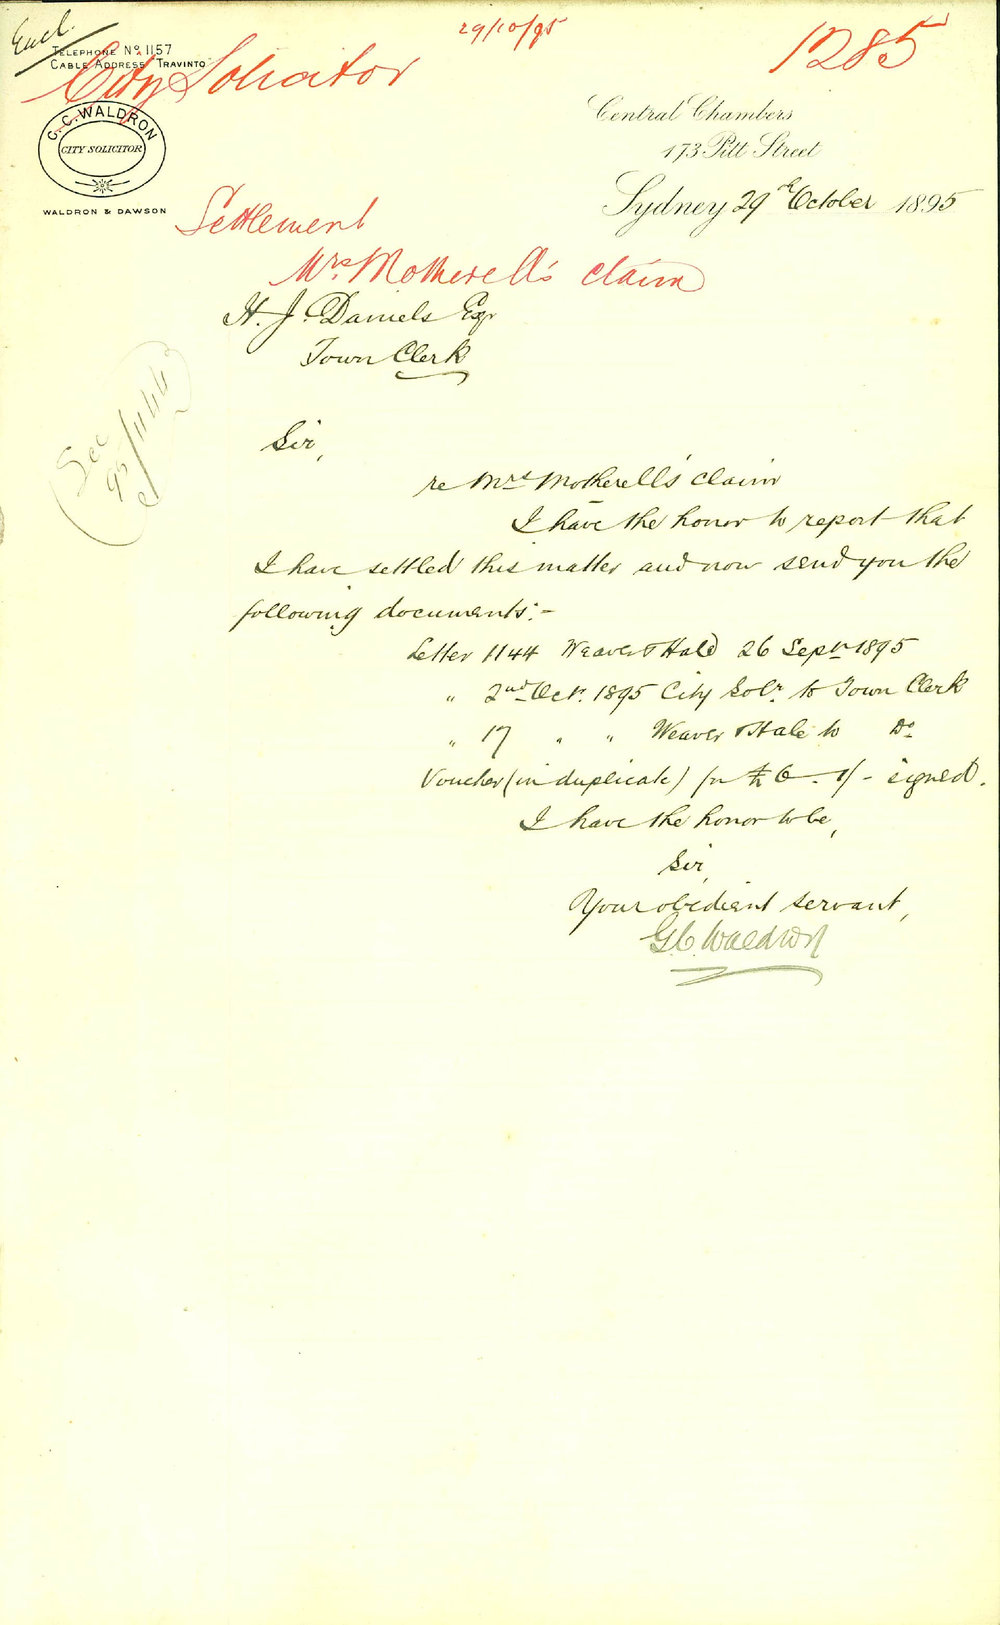 Encl.
29/10/95
1285
TELEPHONE No. 1157
CABLE ADDRESS TRAVINTO
City Solicitor
G. C. WALDRON
CITY SOLICITOR
WALDRON & DAWSON
Central Chambers
173 Pitt Street
Sydney 29th October 1895
Settlement
Mrs. Motherell's claim
H. J. Daniels Esqr
Town Clerk
See
95/1144
Sir,
re Mrs Motherell's claim
I have the honor to report that
I have settled this matter and now send you the
following documents:-
Letter 1144 Weaver & Hale 26 Sepr 1895
" 2nd Octr. 1895 City Solr. to Town Clerk
" 17 " " Weaver & Hale to Do
Voucher (in duplicate) for £6.1/- signed.
I have the honor to be,
Sir,
Your obedient servant,
G. C. Waldron